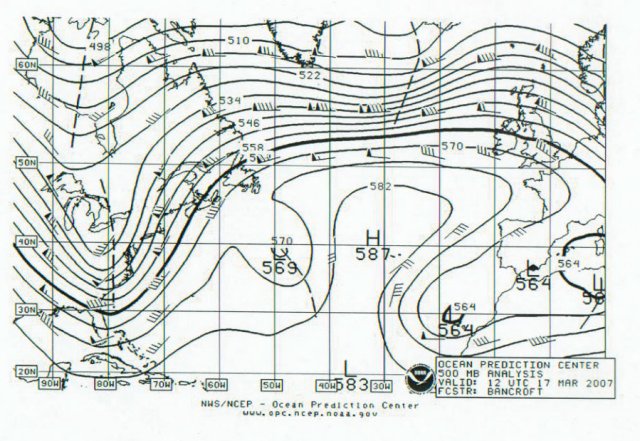 498
510
60N
522
534
546
558
570
50N
582
40N
570
H
587
569
564
L
564
L
30N
564
564
20N
L
583
90W
80W
70W
60W
50W
40W
30W
OCEAN PREDICTION CENTER
500 MB ANALYSIS
VALID: 12 UTC 17 MAR 2007
FCSTR: BANCROFT
NWS/NCEP - Ocean Prediction Center
www.opc.ncep.noaa.gov